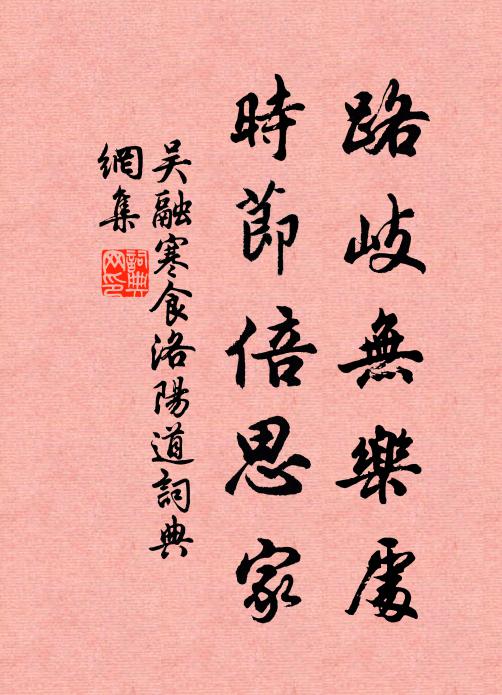 路岐無樂處
時節倍思家
吴融寒食洛陽道詞典
網集
詞典
网印